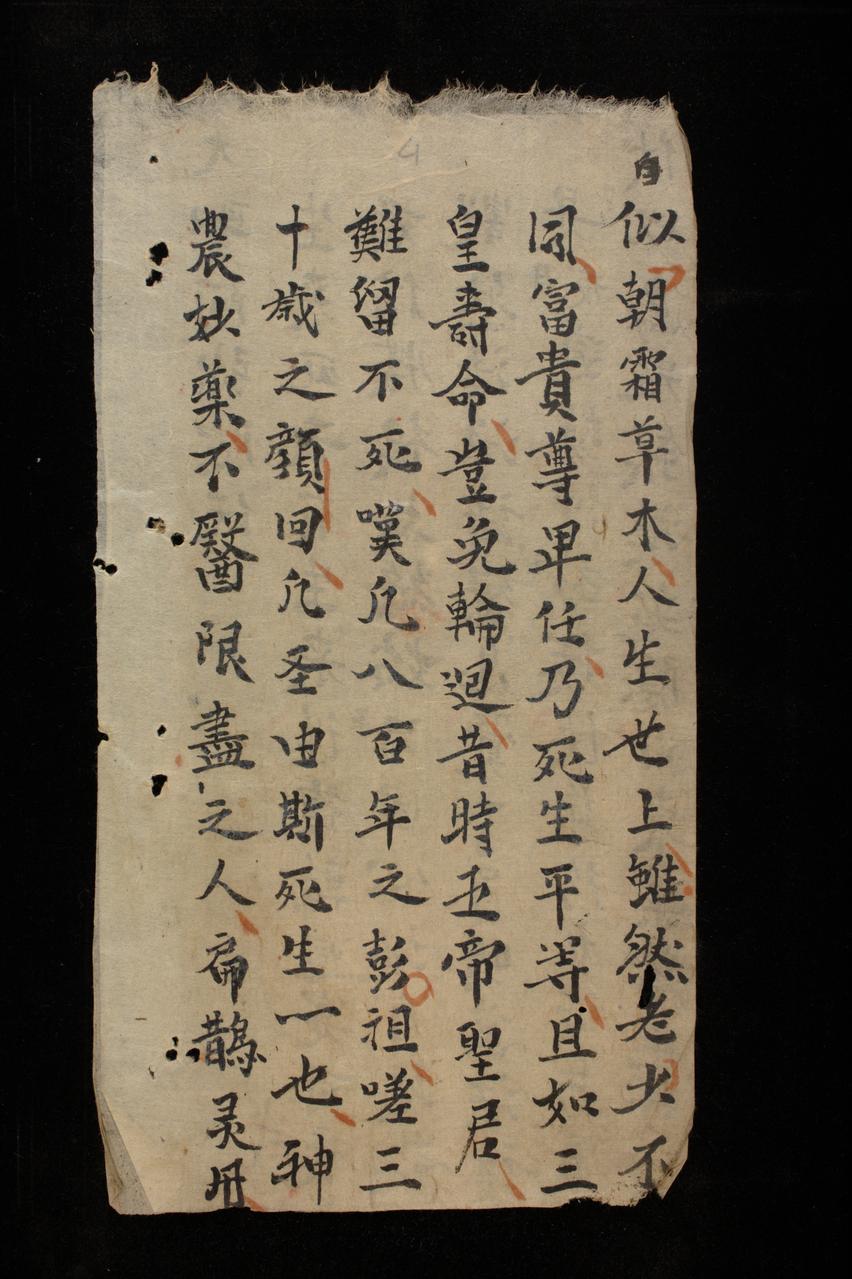 自
似朝霜草木人生世上雖然老少不
同富貴尊卑任乃死生平等且如三
皇壽命豈免輪迴昔時五帝聖居
難留不死嘆凡八百年之彭祖嗟三
十歲之顏回凡圣由斯死生一也神
農妙藥不醫限盡之人扁鵲灵丹